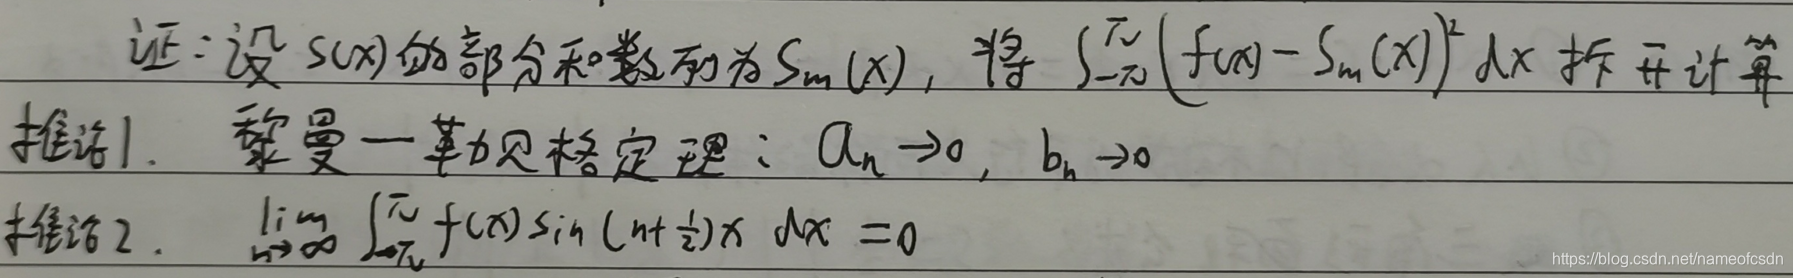 证：设 S(x) 的部分和数列为 Sₘ(x)，将 ∫_{-π}^{π} (f(x) - Sₘ(x))² dx 拆开计算
推论1. 黎曼-勒贝格定理：aₙ→0, bₙ→0
推论2. lim_{n→∞} ∫_{-π}^{π} f(x) sin(n+1/2)x dx = 0
https://blog.csdn.net/nameofcsdn